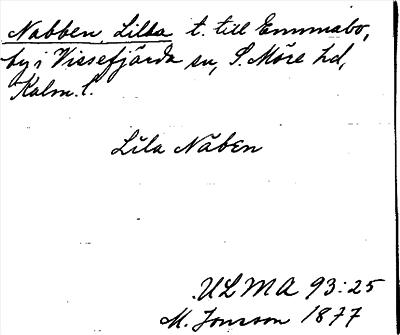 Nabben, Lilla t. till Emmabo,
by i Vissefjärda sn, S. Möre hd,
Kalm. l.
Lila Näben
ULMA 93:25
M. Jonsson 1877